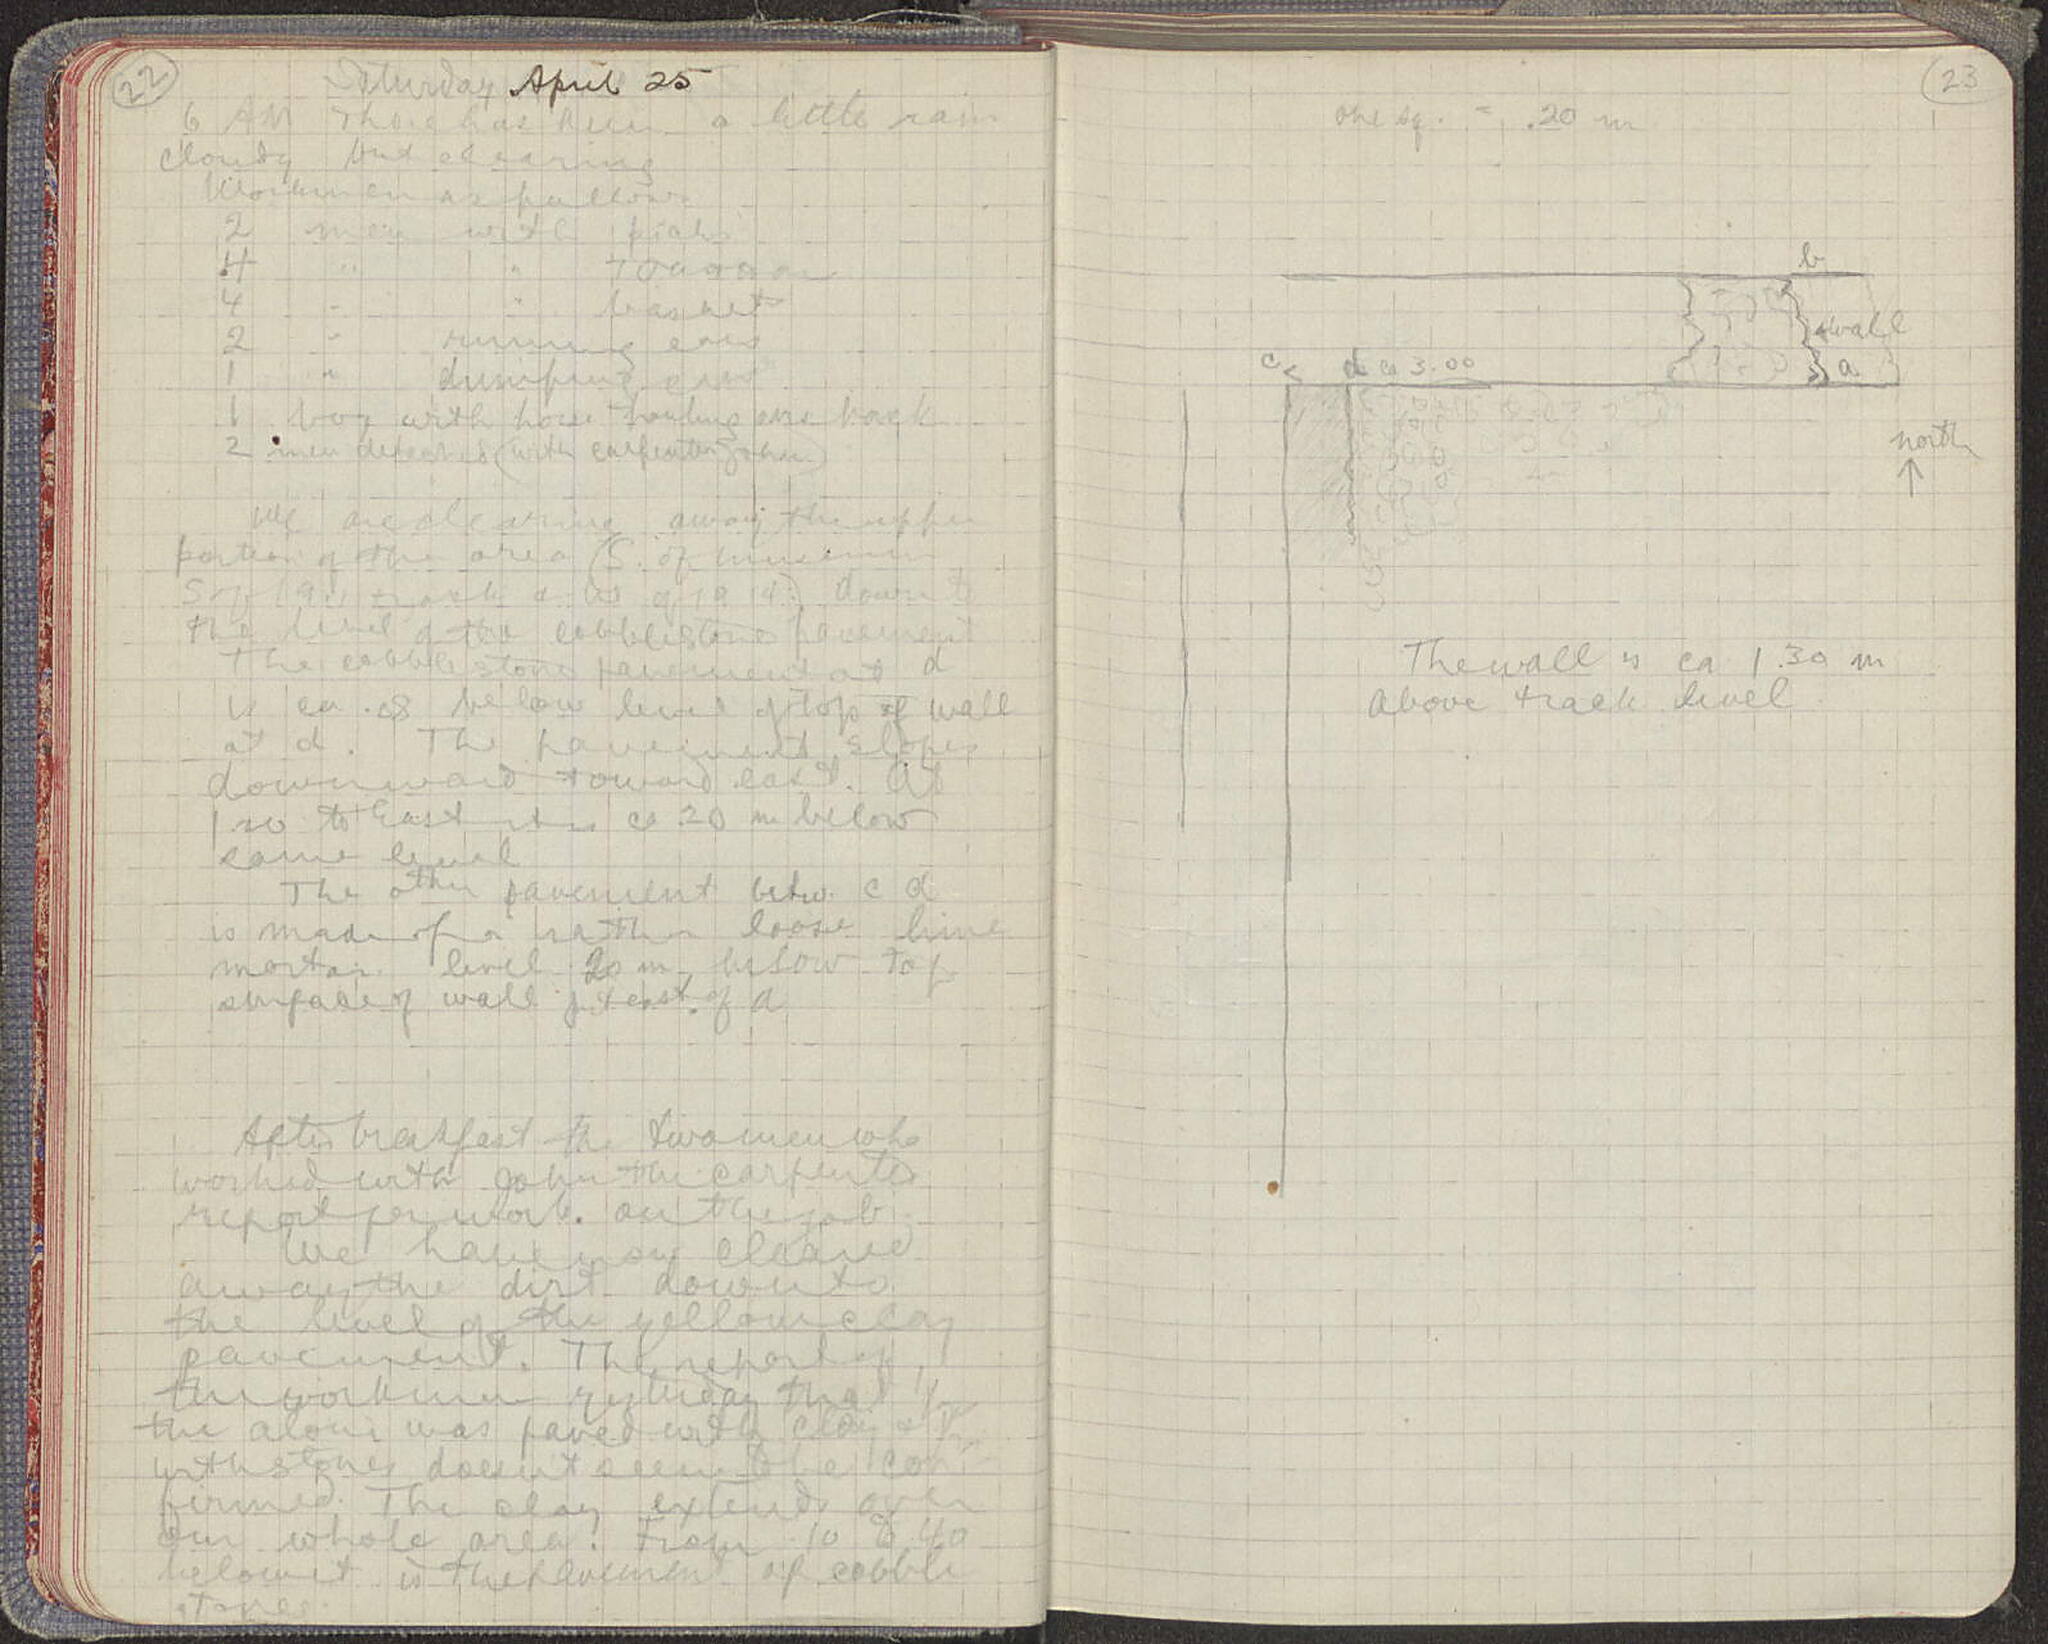 22
Saturday April 25
6 AM There has been a little rain
cloudy but clearing
Workmen as follows
2 men with picks
4 " "
4 " " basket
2 " running cars
1 " dumping cars
1 boy with horse hauling cars back
2 men detached (with carpenter John)
We are clearing away the upper
portion of the area (S. of museum
S of 1911 track & W of 1914) down to
the level of the cobblestone pavement
The cobblestone pavement at d
is ca .08 below level of top of wall
at d. The pavement slopes
downward toward east. At
1.20 to East it is ca .20 m below
same level
The other pavement betw. c d
is made of a rather loose lime
mortar level .20 m below top
surface of wall just east of d
After breakfast the two men who
worked with John the carpenter
report for work on the job.
We have now cleared
away the dirt down to
the level of the yellow clay
pavement. The report of
the workmen yesterday that
the was paved with clay &
with stones doesn't seem to be con
firmed. The clay extends over
our whole area. From .10 to .40
below it is the pavement of cobble
stones.
23
One sq. = .20 m
b
wall
c d ca 3.00 a
north
The wall is ca 1.30 m
above track level